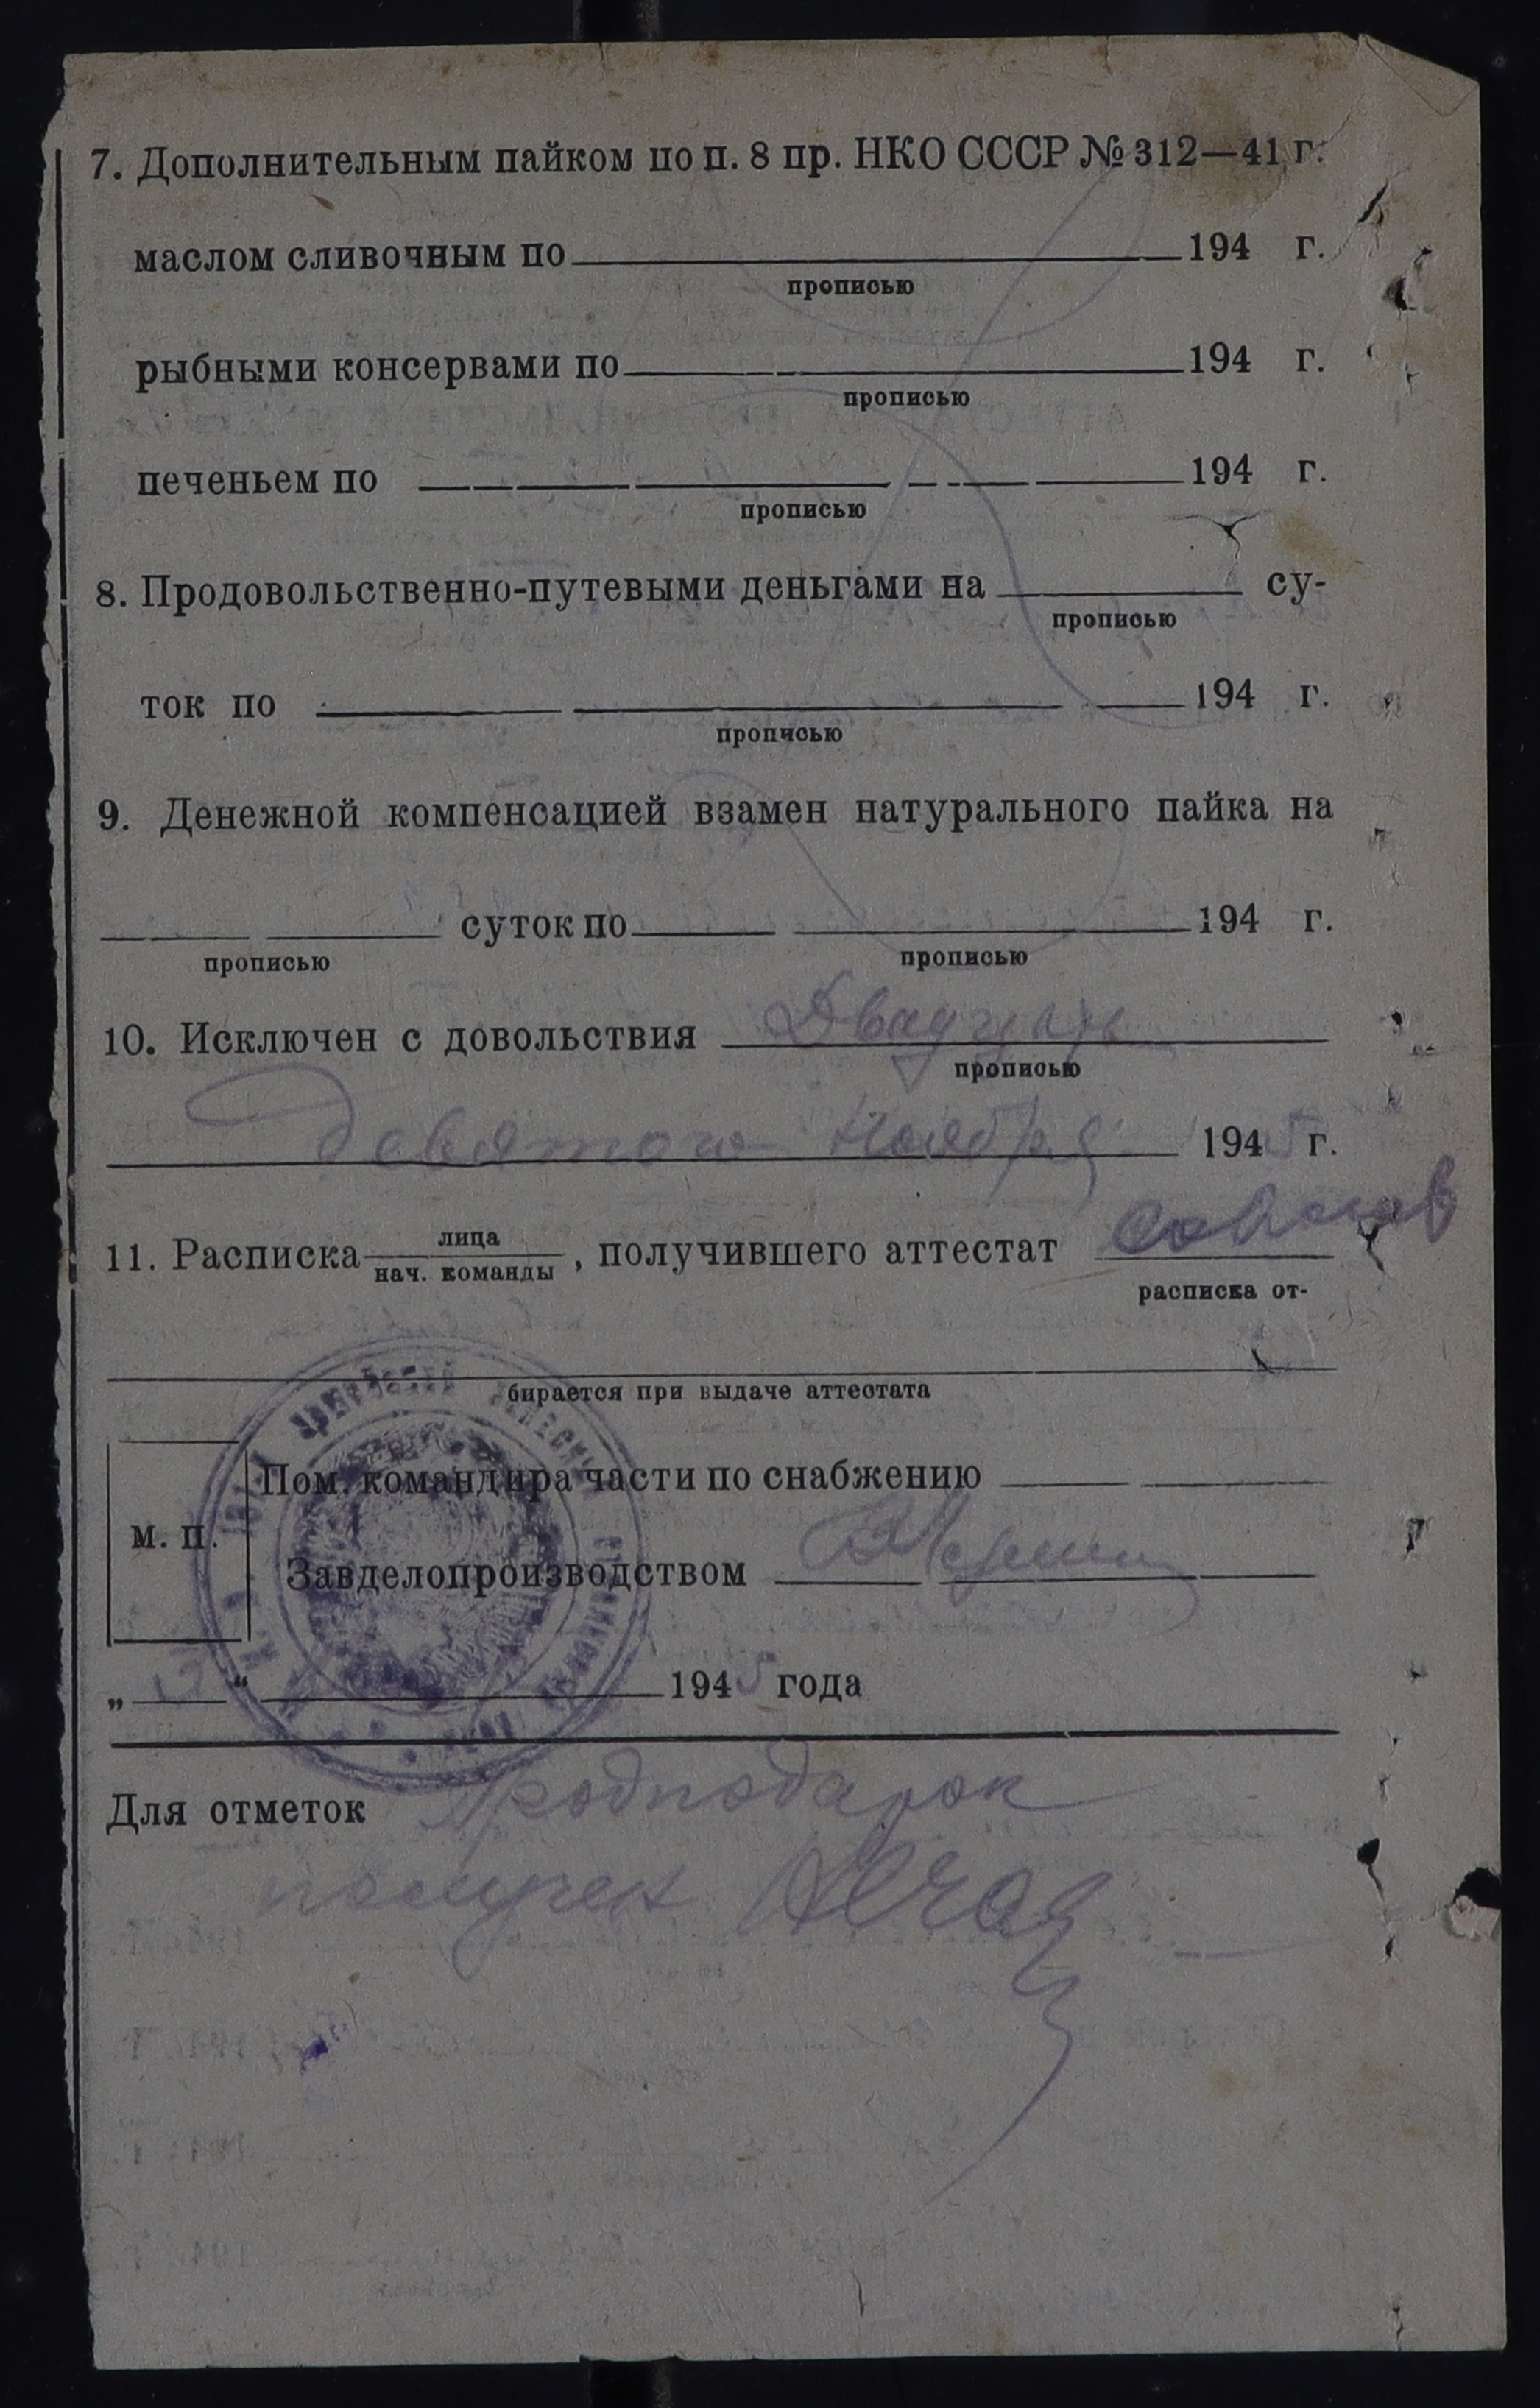 7. Дополнительным пайком по п. 8 пр. НКО СССР № 312—41 г.
маслом сливочным по 194 г.
прописью
рыбными консервами по 194 г.
прописью
печеньем по 194 г.
прописью
8. Продовольственно-путевыми деньгами на су-
прописью
ток по 194 г.
прописью
9. Денежной компенсацией взамен натурального пайка на
суток по 194 г.
прописью прописью
10. Исключен с довольствия Двадцать
прописью
девятого Ноября 1945 г.
11. Расписка лица
нач. команды , получившего аттестат
расписка от-
бирается при выдаче аттестата
Пом. командира части по снабжению
м. п.
Завделопроизводством
„ “ 1945 года
Для отметок Продподарок
получен